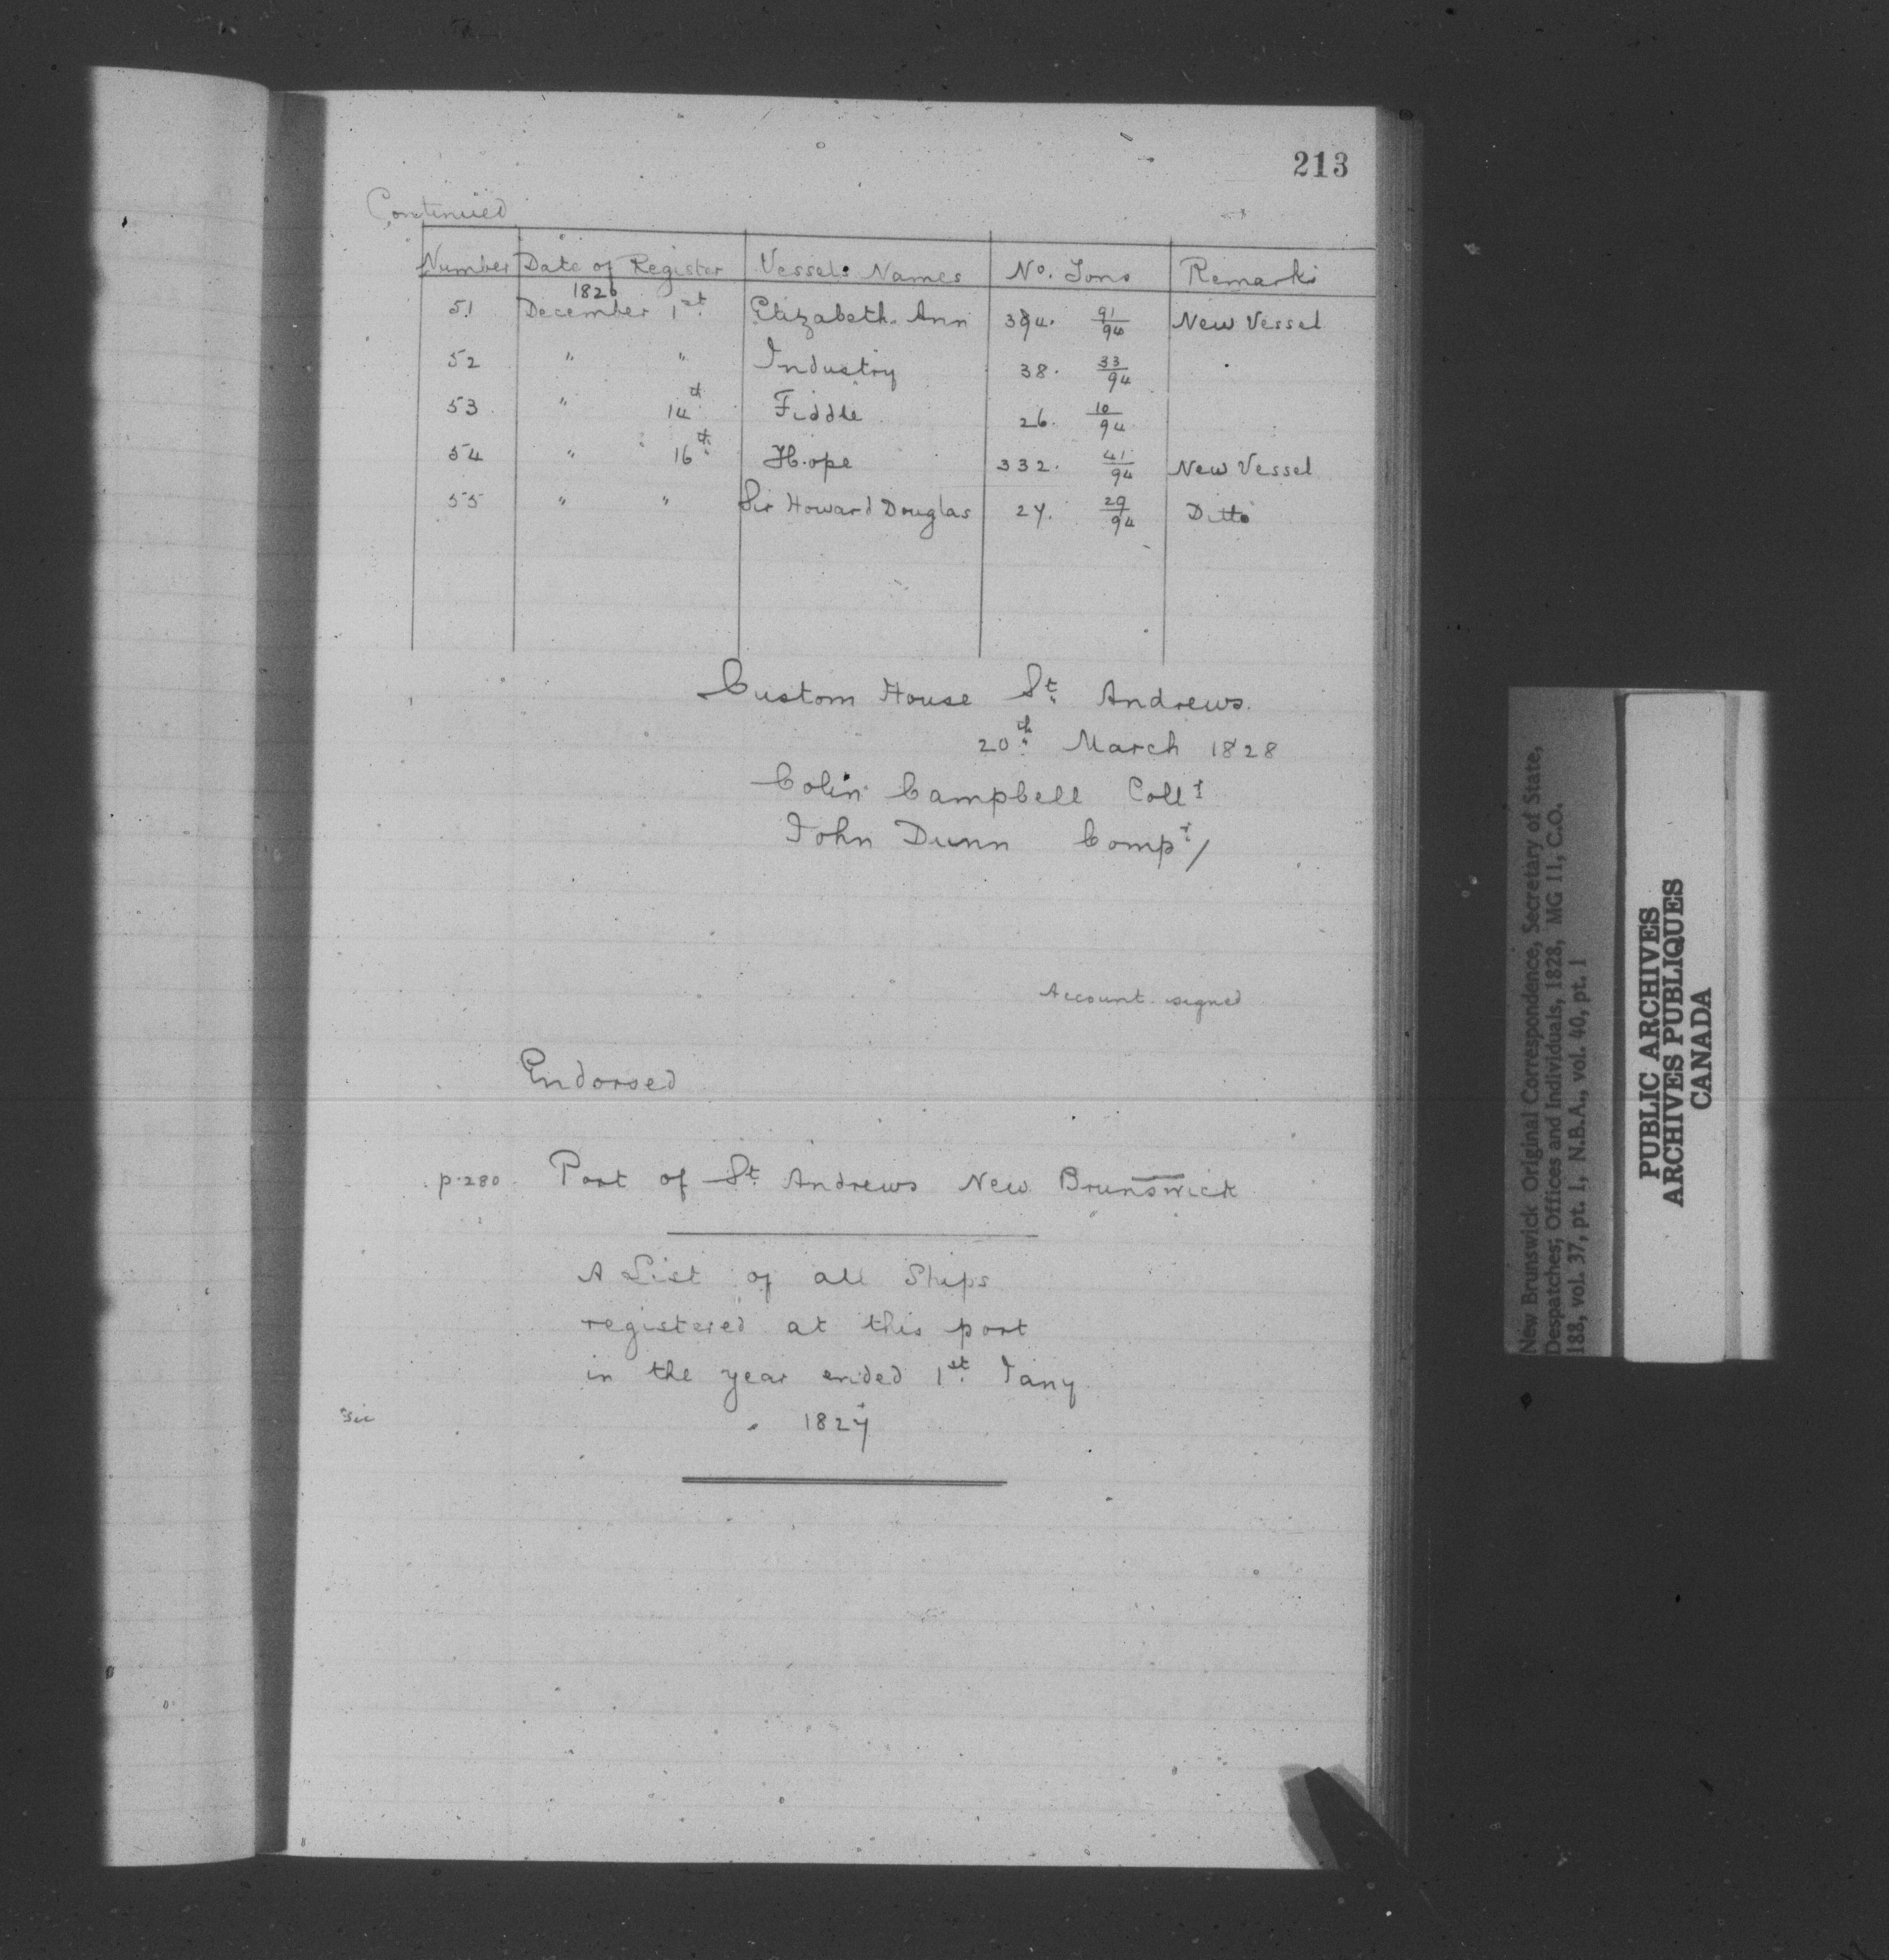 213
Continued
Number Date of Register Vessels Names No. Tons Remarks
1826
51 December 1st Elizabeth Ann 394. 91/94 New Vessel
52 " " Industry 38. 33/94
53 " 14th Fiddle 26. 10/94
54 " 16th Hope 332. 41/94 New Vessel
55 " " Sir Howard Douglas 27. 29/94 Ditto
Custom House St. Andrews.
20th March 1828
Colin Campbell Collr
John Dunn Compr/
Account signed
Endorsed
p.280. Port of St. Andrews New Brunswick
A List of all Ships
registered at this port
in the year ended 1st Jany
sic 1827
New Brunswick Original Correspondence, Secretary of State,
Despatches; Offices and Individuals, 1828, MG 11, C.O.
188, vol. 37, pt. 1, N.B.A., vol. 40, pt. 1
PUBLIC ARCHIVES
ARCHIVES PUBLIQUES
CANADA